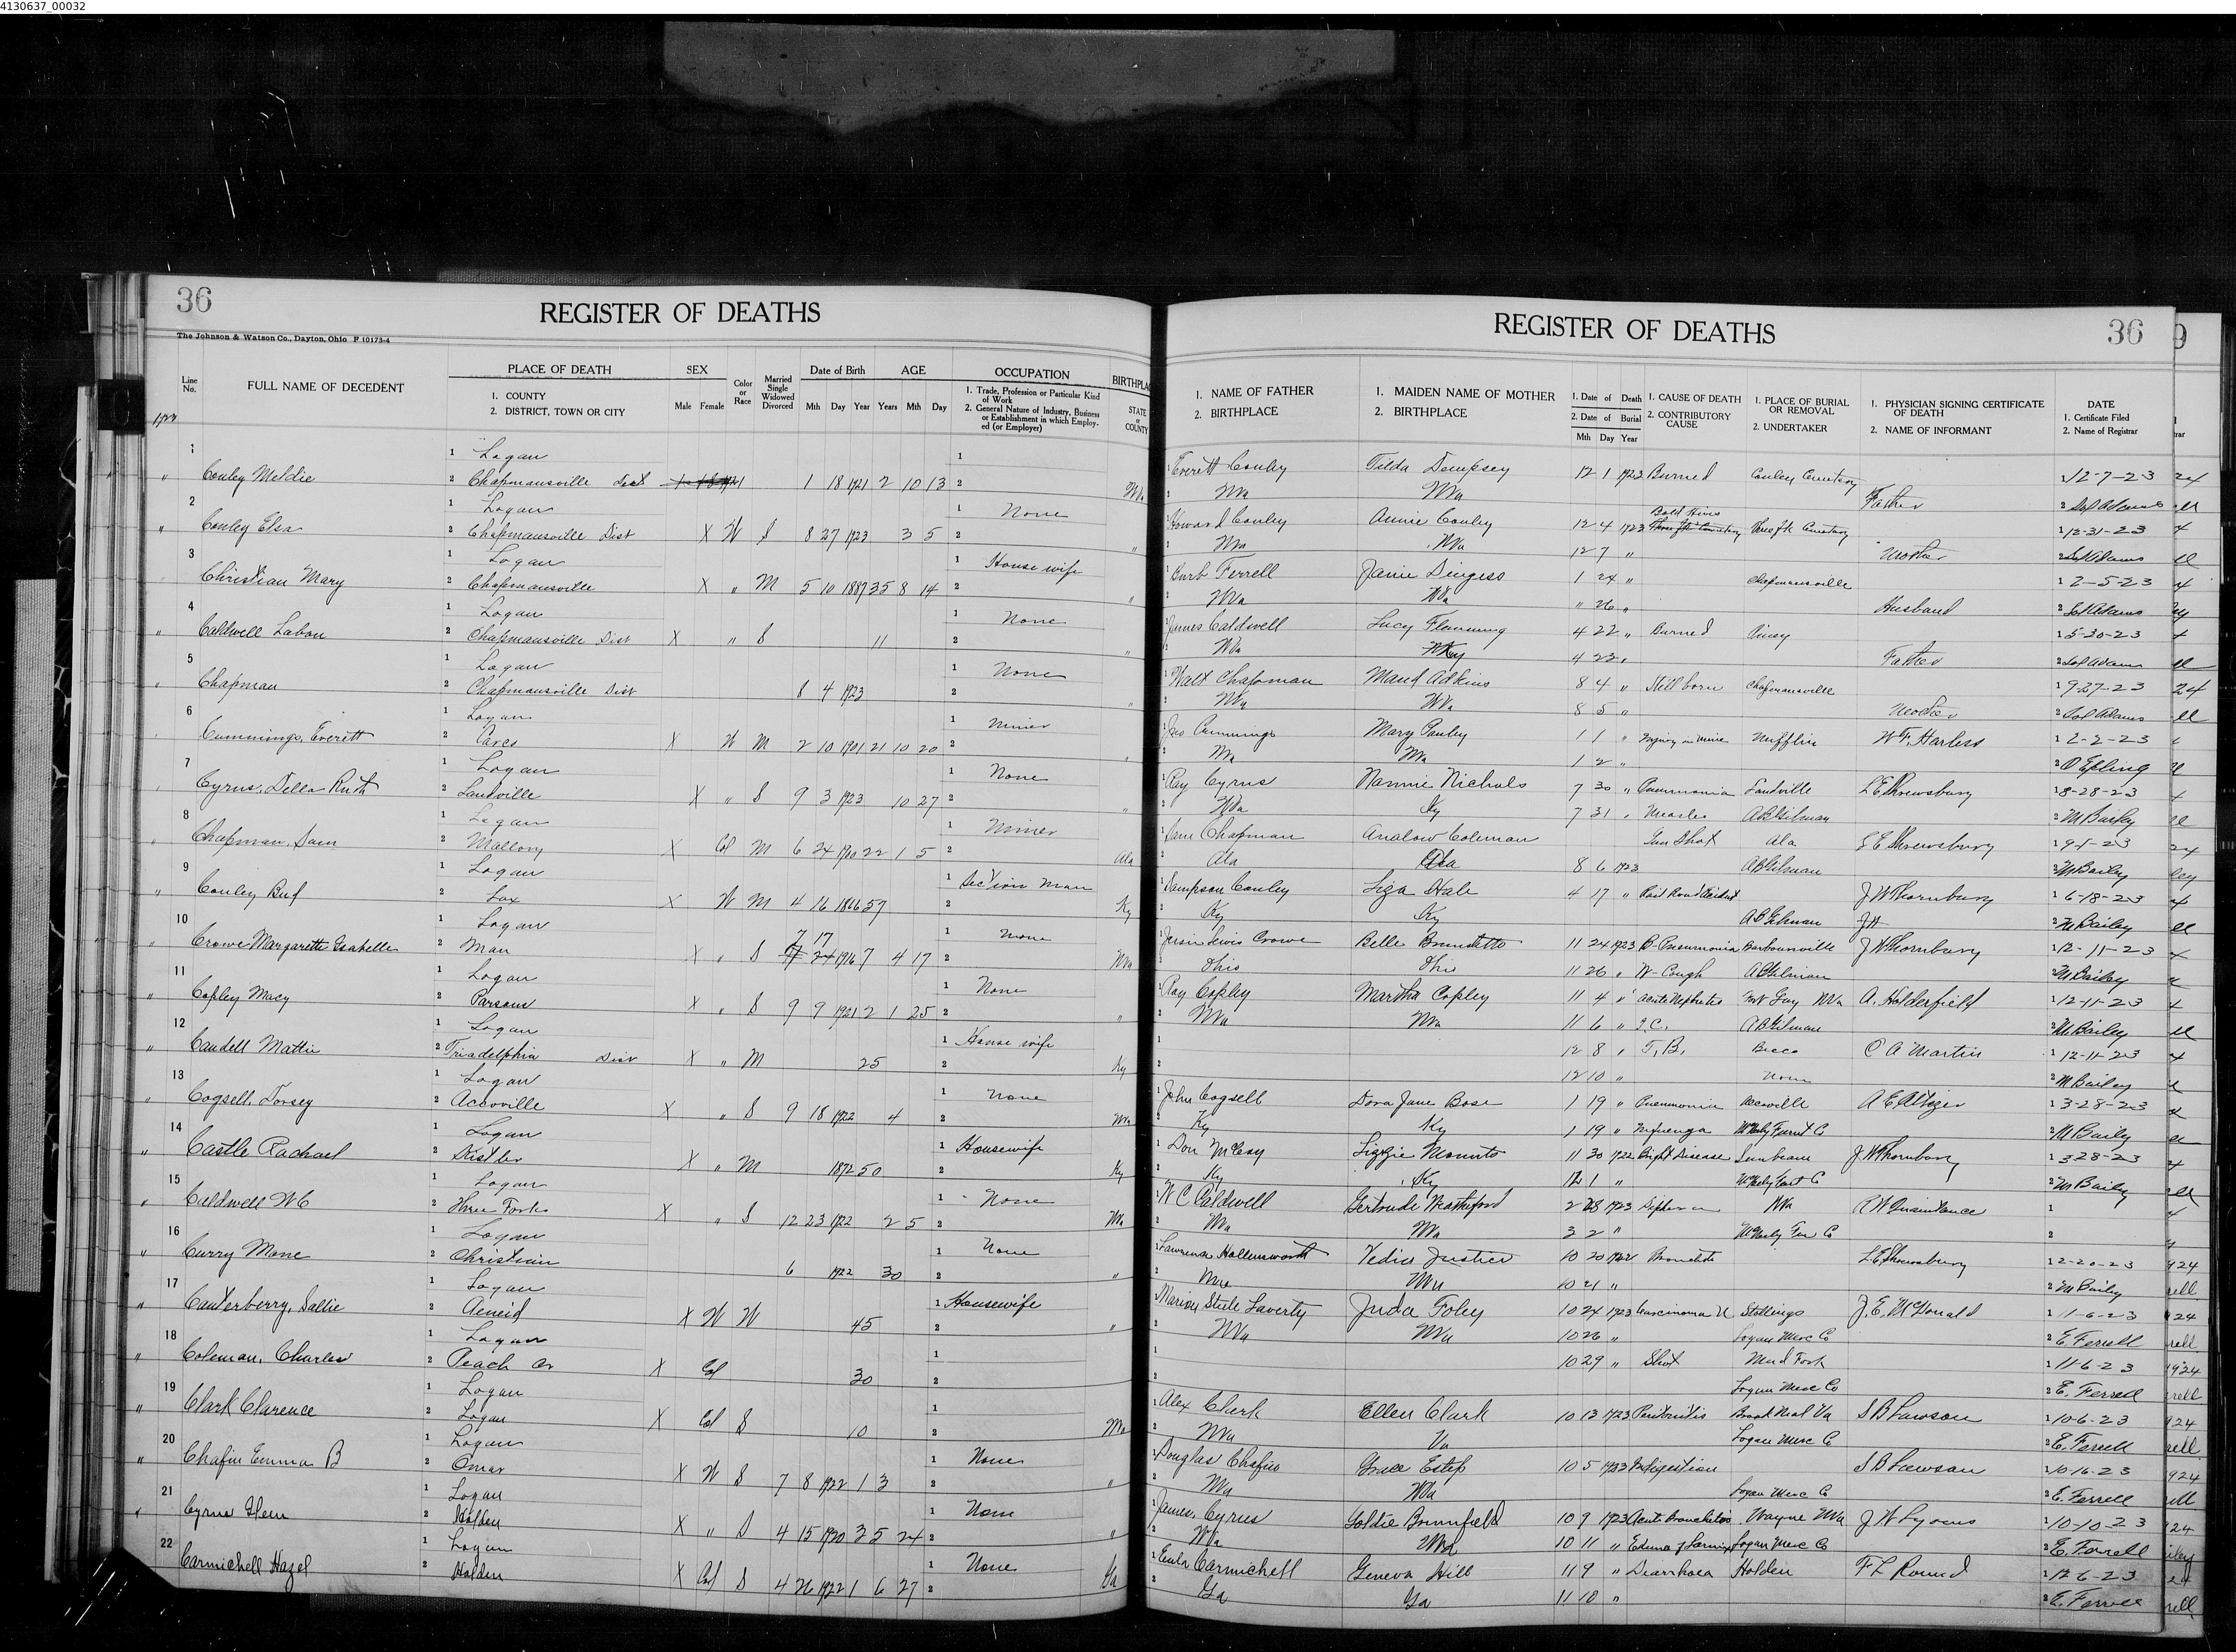 4130637_00032
36
REGISTER OF DEATHS
The Johnson & Watson Co., Dayton, Ohio F 10173-4
Line No.
FULL NAME OF DECEDENT
PLACE OF DEATH
1. COUNTY
2. DISTRICT, TOWN OR CITY
SEX
Male Female
Color or Race
Married Single Widowed Divorced
Date of Birth
Mth Day Year
AGE
Years Mth Day
OCCUPATION
1. Trade, Profession or Particular Kind of Work
2. General Nature of Industry, Business or Establishment in which Employed (or Employer)
STATE or COUNTY
REGISTER OF DEATHS
36
1. NAME OF FATHER
2. BIRTHPLACE
1. MAIDEN NAME OF MOTHER
2. BIRTHPLACE
1. Date of Death
2. Date of Burial
Mth Day Year
1. CAUSE OF DEATH
2. CONTRIBUTORY CAUSE
1. PLACE OF BURIAL OR REMOVAL
2. UNDERTAKER
1. PHYSICIAN SIGNING CERTIFICATE OF DEATH
2. NAME OF INFORMANT
DATE
1. Certificate Filed
2. Name of Registrar
1 Logan 1 Everett Conley Tilda Dempsey 12 1 1923 Burned Conley Cemetery 12-7-23
" Conley Meldie 2 Chapmansville Dist 1 18 1921 2 10 13 2 WVa WVa WVa Father
2 1 Logan 1 None Howard Conley Annie Conley 12 4 1923 Bold Hives Cemetery 12-31-23
" Conley Elsa 2 Chapmansville Dist X W S 8 27 1923 3 5 2 " WVa WVa 12 7 " Mother Sol Adams
3 1 Logan 1 House wife Burb Ferrell Janie Dingess 1 24 " Chapmansville 2-5-23
Christian Mary 2 Chapmansville X " M 5 10 1887 35 8 14 2 " WVa WVa " 26 " Husband Sol Adams
4 1 Logan 1 None James Caldwell Lucy Flemming 4 22 " Burned 5-30-23
" Caldwell Labon 2 Chapmansville Dist X " S 11 2 " WVa 4 23 " Father Sol Adams
5 1 Logan 1 None Walt Chapman Maud Adkins 8 4 " Still born Chapmansville 9-27-23
" Chapman 2 Chapmansville Dist 8 4 1923 2 " WVa WVa 8 5 " Mother Sol Adams
6 1 Logan 1 Miner Jas Cummings Mary Pauley 1 1 " Injury in Mine W F Harless 2-2-23
Cummings, Everett 2 X W M 2 10 1901 21 10 20 2 " WVa WVa 1 2 " O Epling
7 1 Logan 1 None Ray Cyrus Nannie Nichols 7 30 " Pneumonia Landville L E Shrewsbury 8-28-23
Cyrus, Della Ruth 2 Landville X " S 9 3 1923 10 27 2 " WVa Ky 7 31 " Measles A B Gilman M Bailey
8 1 Logan 1 Miner Sam Chapman Coleman Gun Shot Ala L E Shrewsbury 9-1-23
Chapman, Sam 2 Mallory X Col M 6 24 1900 22 1 5 2 Ala Ala Ala 8 6 1923 A B Gilman M Bailey
9 1 Logan 1 Section Man Sampson Conley Liza Hale 4 17 " Rail Road Accident J W Thornbury 6-18-23
" Conley Bud 2 Lax X W M 4 16 1866 57 2 Ky Ky Ky A B Gilman M Bailey
10 1 Logan 1 None Lewis Crowe Belle 11 24 1923 B-Pneumonia Barboursville J W Thornbury 12-11-23
" Crowe Margarette Isabelle 2 Man X " S 7 17 1916 7 4 17 2 WVa Ohio Ohio 11 26 " W-Cough A B Gilman M Bailey
11 1 Logan 1 None Roy Copley Martha Copley 11 4 " Acute Nephritis Fort Gay WVa A. Holderfield 12-11-23
" Copley Macy 2 Parsons X " S 9 9 1921 2 1 25 2 " WVa WVa 11 6 " I.C. A B Gilman M Bailey
12 1 Logan 1 House wife 12 8 " T.B. Becco C A Martin 12-11-23
" Caudell Mattie 2 Triadelphia Dist X " M 25 2 Ky 12 10 " None M Bailey
13 1 Logan 1 None John Cogsell Dora Jane Bose 1 19 " Pneumonia Accoville A E Altizer 3-28-23
" Cogsell, Torsey 2 Accoville X " S 9 18 1922 4 2 WVa Ky Ky 1 19 " M Bailey
14 1 Logan 1 Housewife Don McCoy Lizzie 11 30 1922 Bright Disease Sunbeam J W Thornbury 3-28-23
" Castle Rachael 2 Kistler X " M 1872 50 2 Ky Ky Ky 12 1 " M Bailey
15 1 Logan 1 None W C Caldwell Gertrude Weatherford 2 28 1923 WVa 1
" Caldwell W C 2 Three Forks X " S 12 23 1922 2 5 2 WVa WVa WVa 3 2 " 2
16 1 Logan 1 None Lawrence Hollensworth Vedia Justice 10 20 1922 L E Shrewsbury 12-20-23
" Curry Mone 2 Christian 6 1922 30 2 " WVa WVa 10 21 " M Bailey
17 1 Logan 1 Housewife Marion Steele Laverty Juda Foley 10 24 1923 Carcinoma U Stallings J. E. McDonald 11-6-23
" Canterberry, Sallie 2 Aeneid X W W 45 2 " WVa WVa 10 26 " Logan Merc Co E. Ferrell
18 1 Logan 1 10 29 " Shot Mud Fork 11-6-23
" Coleman, Charles 2 Peach Cr X Col 30 2 Logan Merc Co E. Ferrell
19 1 Logan 1 Alex Clark Ellen Clark 10 13 1923 Peritonitis Brook Neal Va S B Lawson 10-6-23
" Clark Clarence 2 Logan X Col S 10 2 WVa WVa Va Logan Merc Co E. Ferrell
20 1 Logan 1 None Douglas Chafin Grace Estep 10 5 1923 Indigestion S B Lawson 10-16-23
" Chafin Emma B 2 Omar X W S 7 8 1922 1 3 2 " WVa WVa Logan Merc Co E. Ferrell
21 1 Logan 1 None James Cyrus Goldie Brumfield 10 9 1923 Acute Bronchitis Wayne WVa J W Lyons 10-10-23
" Cyrus Glen 2 Holden X " S 4 15 1920 3 5 24 2 " WVa WVa 10 11 " Edema of Larnix Logan Merc Co E. Ferrell
22 1 Logan 1 None Eula Carmichell Geneva Hill 11 9 " Diarrhoea Holden F L Round 12-6-23
Carmichell Hazel 2 Holden X Col S 4 26 1922 1 6 27 2 Ga Ga Ga 11 10 " E. Ferrell